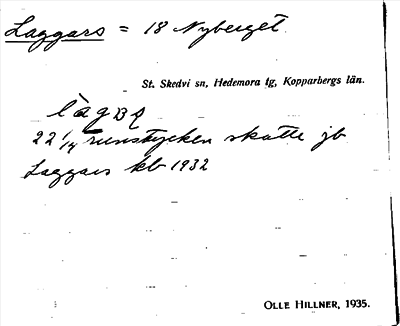 Laggars = 18 Nyberget.
St. Skedvi sn, Hedemora tg, Kopparbergs län.
22 1/4 runstycken skatte jb
Laggars kb 1932
OLLE HILLNER, 1935.